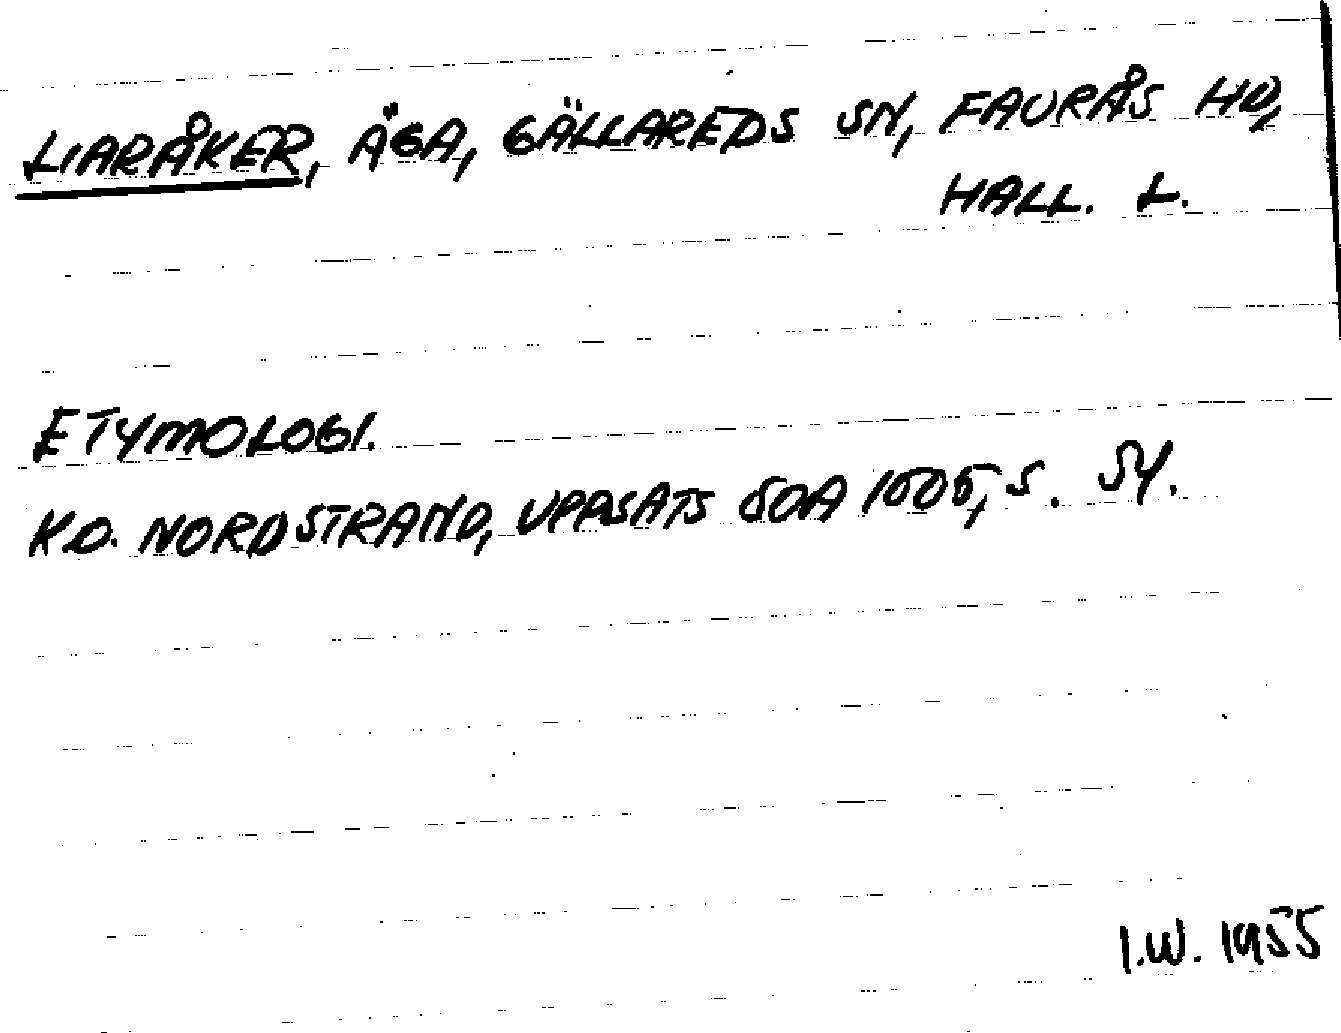 LIARÅKER, ÄGA, GÄLLAREDS SN, FAURÅS HD,
HALL. L.
ETYMOLOGI.
K.D. NORDSTRAND, UPPSATS GOA 1505, S. 54.
I.W. 1955